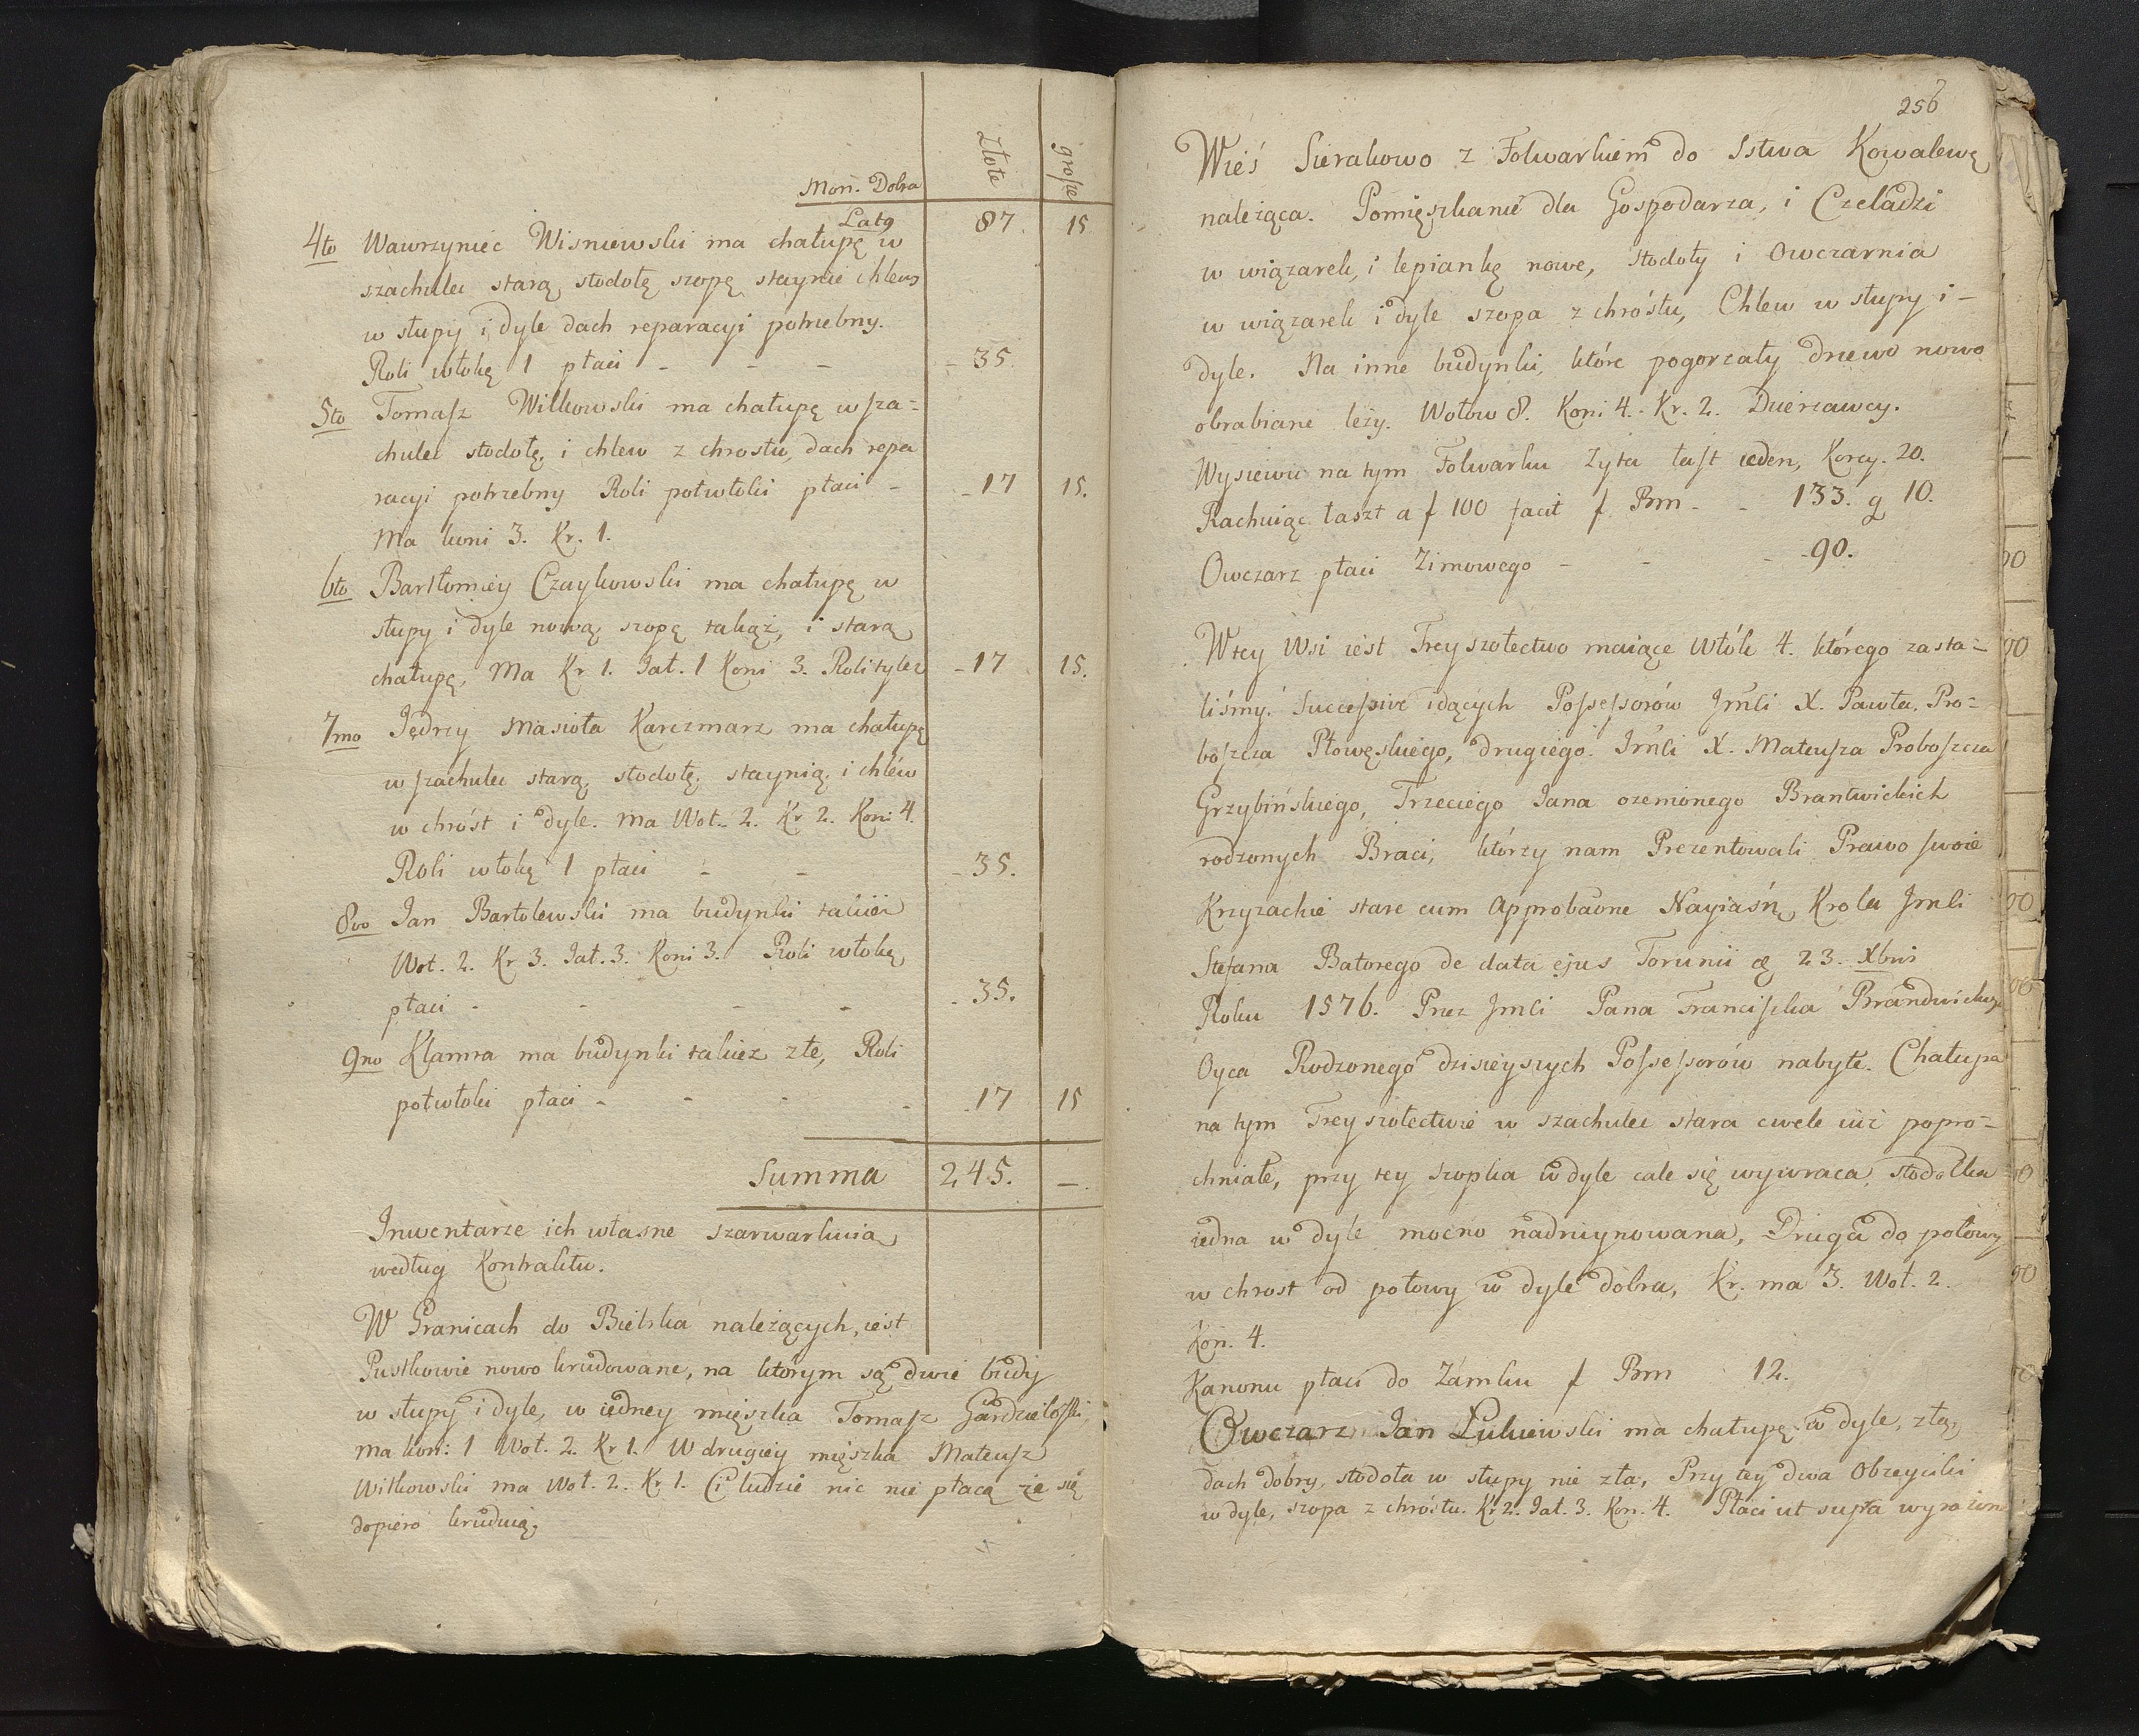 złote grosze
Mon. Dobra
Latq 87. 15
4to Wawrzyniec Wisniewski ma chałupę w
szachulec starą, stodołę szopę staynie chlew
w słupy i dyle dach reparacyi potrzebny.
Roli włokę 1 płaci - - - - 35.
5to Tomasz Witkowski ma chałupę w sza=
chulec stodołę, i chlew z chrostu, dach repa
racyi potrzebny Roli połwłoki płaci - - 17 15.
Ma koni 3. Kr. 1.
6to Bartłomiey Czaykowski ma chałupę w
słupy i dyle nową, szopę takąż, i starą
chałupę, Ma Kr 1. Jał. 1 Koni 3. Roli tyleż - 17 15.
7mo Jędrzy Masiota Karczmarz ma chałupę
w szachulec starą, stodołę, staynią, i chlew
w chróst i dyle. ma Woł. 2. Kr 2. Koni 4.
Roli włokę 1 płaci - - - 35.
8vo Jan Bartolewski ma budynki takież
Woł. 2. Kr 3. Jał. 3. Koni 3. Roli włokę
płaci - - - - - 35.
9no Klamra ma budynki takież złe, Roli
połwłoki płaci - - - - - 17 15
Summa 245. -
Inwentarze ich własne szarwarkuią
według Kontraktu.
W Granicach do Bielska należących, iest
Pustkowie nowo krudowane, na którym są dwie budy
w słupy i dyle, w iedney mięszka Tomasz
ma kon: 1 Woł. 2. Kr 1. W drugiey mięszka Mateusz
Witkowski ma Woł. 2. Kr 1. Ci ludzie nic nie płacą że się
dopiero kruduią.
256
Wieś Sierakowo z Folwarkiem do Sstwa Kowalewę
należąca. Pomięszkanie dla Gospodarza, i Czeladzi
w wiązarek, i lepiankę nowe, stodoły i Owczarnia
w wiązarek i dyle szopa z chróstu, Chlew w słupy i -
dyle. Na inne budynki, które pogorzały drzewo nowo
obrabiane leży. Wołow 8. Koni 4. Kr. 2. Dzierzawcy.
Wysiewu na tym Folwarku Zyta łast ieden, Korcy. 20.
Rachuiąc łaszt a f 100 facit f Prm - - 133. g 10.
Owczarz płaci Zimowego - - - - 90.
Wtey Wsi iest Freyszołectwo maiące Włók 4. którego zasta=
liśmy. Successive idących Possessorów Jmći X. Pawła, Pro=
boszcza Płowęskiego, drugiego. Jmći X. Mateusza Proboszcza
Grzybińskiego, Trzeciego Jana ozenionego Brantwickich
rodzonych Braci, którzy nam Prezentowali Prawo swoie
Krzyzackie stare cum Approbaone Nayiaśn. Krola Jmći
Stefana Batorego de data ejus Torunii 23. Xbris
Roku 1576. Przez Jmći Pana Franciszka Brandwickiego
Oyca Rodzonego dzisieyszych Possessorów nabyte. Chałupa
na tym Freyszołectwie w szachulec stara cwele iuż popro=
chniałe, przy tey szopka w dyle cale się wywraca, stodołka
iedna w dyle mocno nadruynowana, Druga do połowy
w chrost od połowy w dyle dobra, Kr. ma 3. Woł. 2.
Kon. 4.
Kanonu płaci do Zamku f Prm 12.
Owczarz Jan Lukiewski ma chałupę w dyle, złą,
dach dobry, stodoła w słupy nie zła, Przy tey dwa Obzeyciki
w dyle, szopa z chróstu. Kr 2. Jał. 3. Kon. 4. Płaci ut supra wyrażono